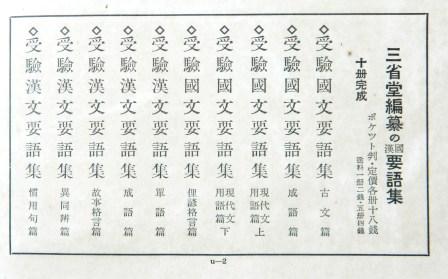 三省堂編纂の國漢要語集
十册完成
ポケット判・定價各册十八錢
送料一册二錢・五册四錢
◇受驗國文要語集 古文篇
◇受驗國文要語集 成語篇
◇受驗國文要語集 現代文用語篇上
◇受驗國文要語集 現代文用語篇下
◇受驗國文要語集 俚諺格言篇
◇受驗漢文要語集 單語篇
◇受驗漢文要語集 成語篇
◇受驗漢文要語集 故事格言篇
◇受驗漢文要語集 異同辨篇
◇受驗漢文要語集 慣用句篇
u—2